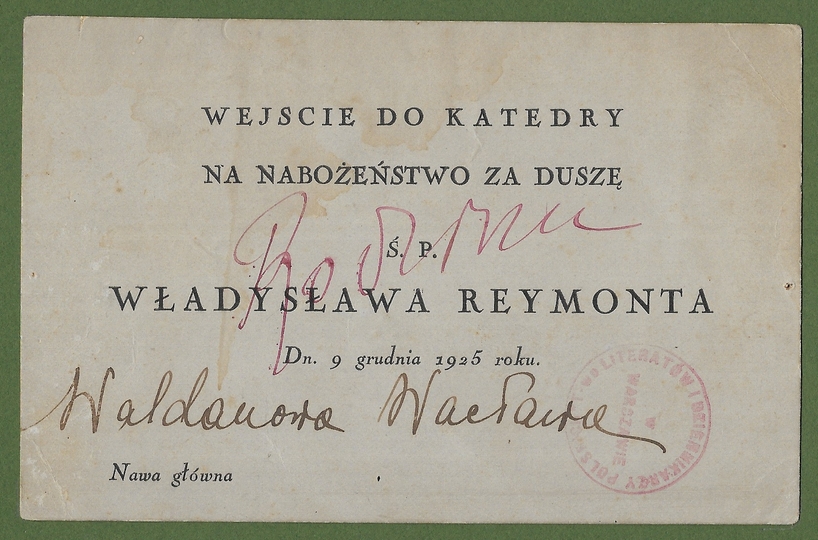 WEJSCIE DO KATEDRY
NA NABOŻEŃSTWO ZA DUSZĘ
Ś. P.
Rodzina
WŁADYSŁAWA REYMONTA
Dn. 9 grudnia 1925 roku.
Waldanowa Wacława
Nawa główna
LITERATÓW I DZIENNIKARZY POLSKICH
W
WARSZAWIE